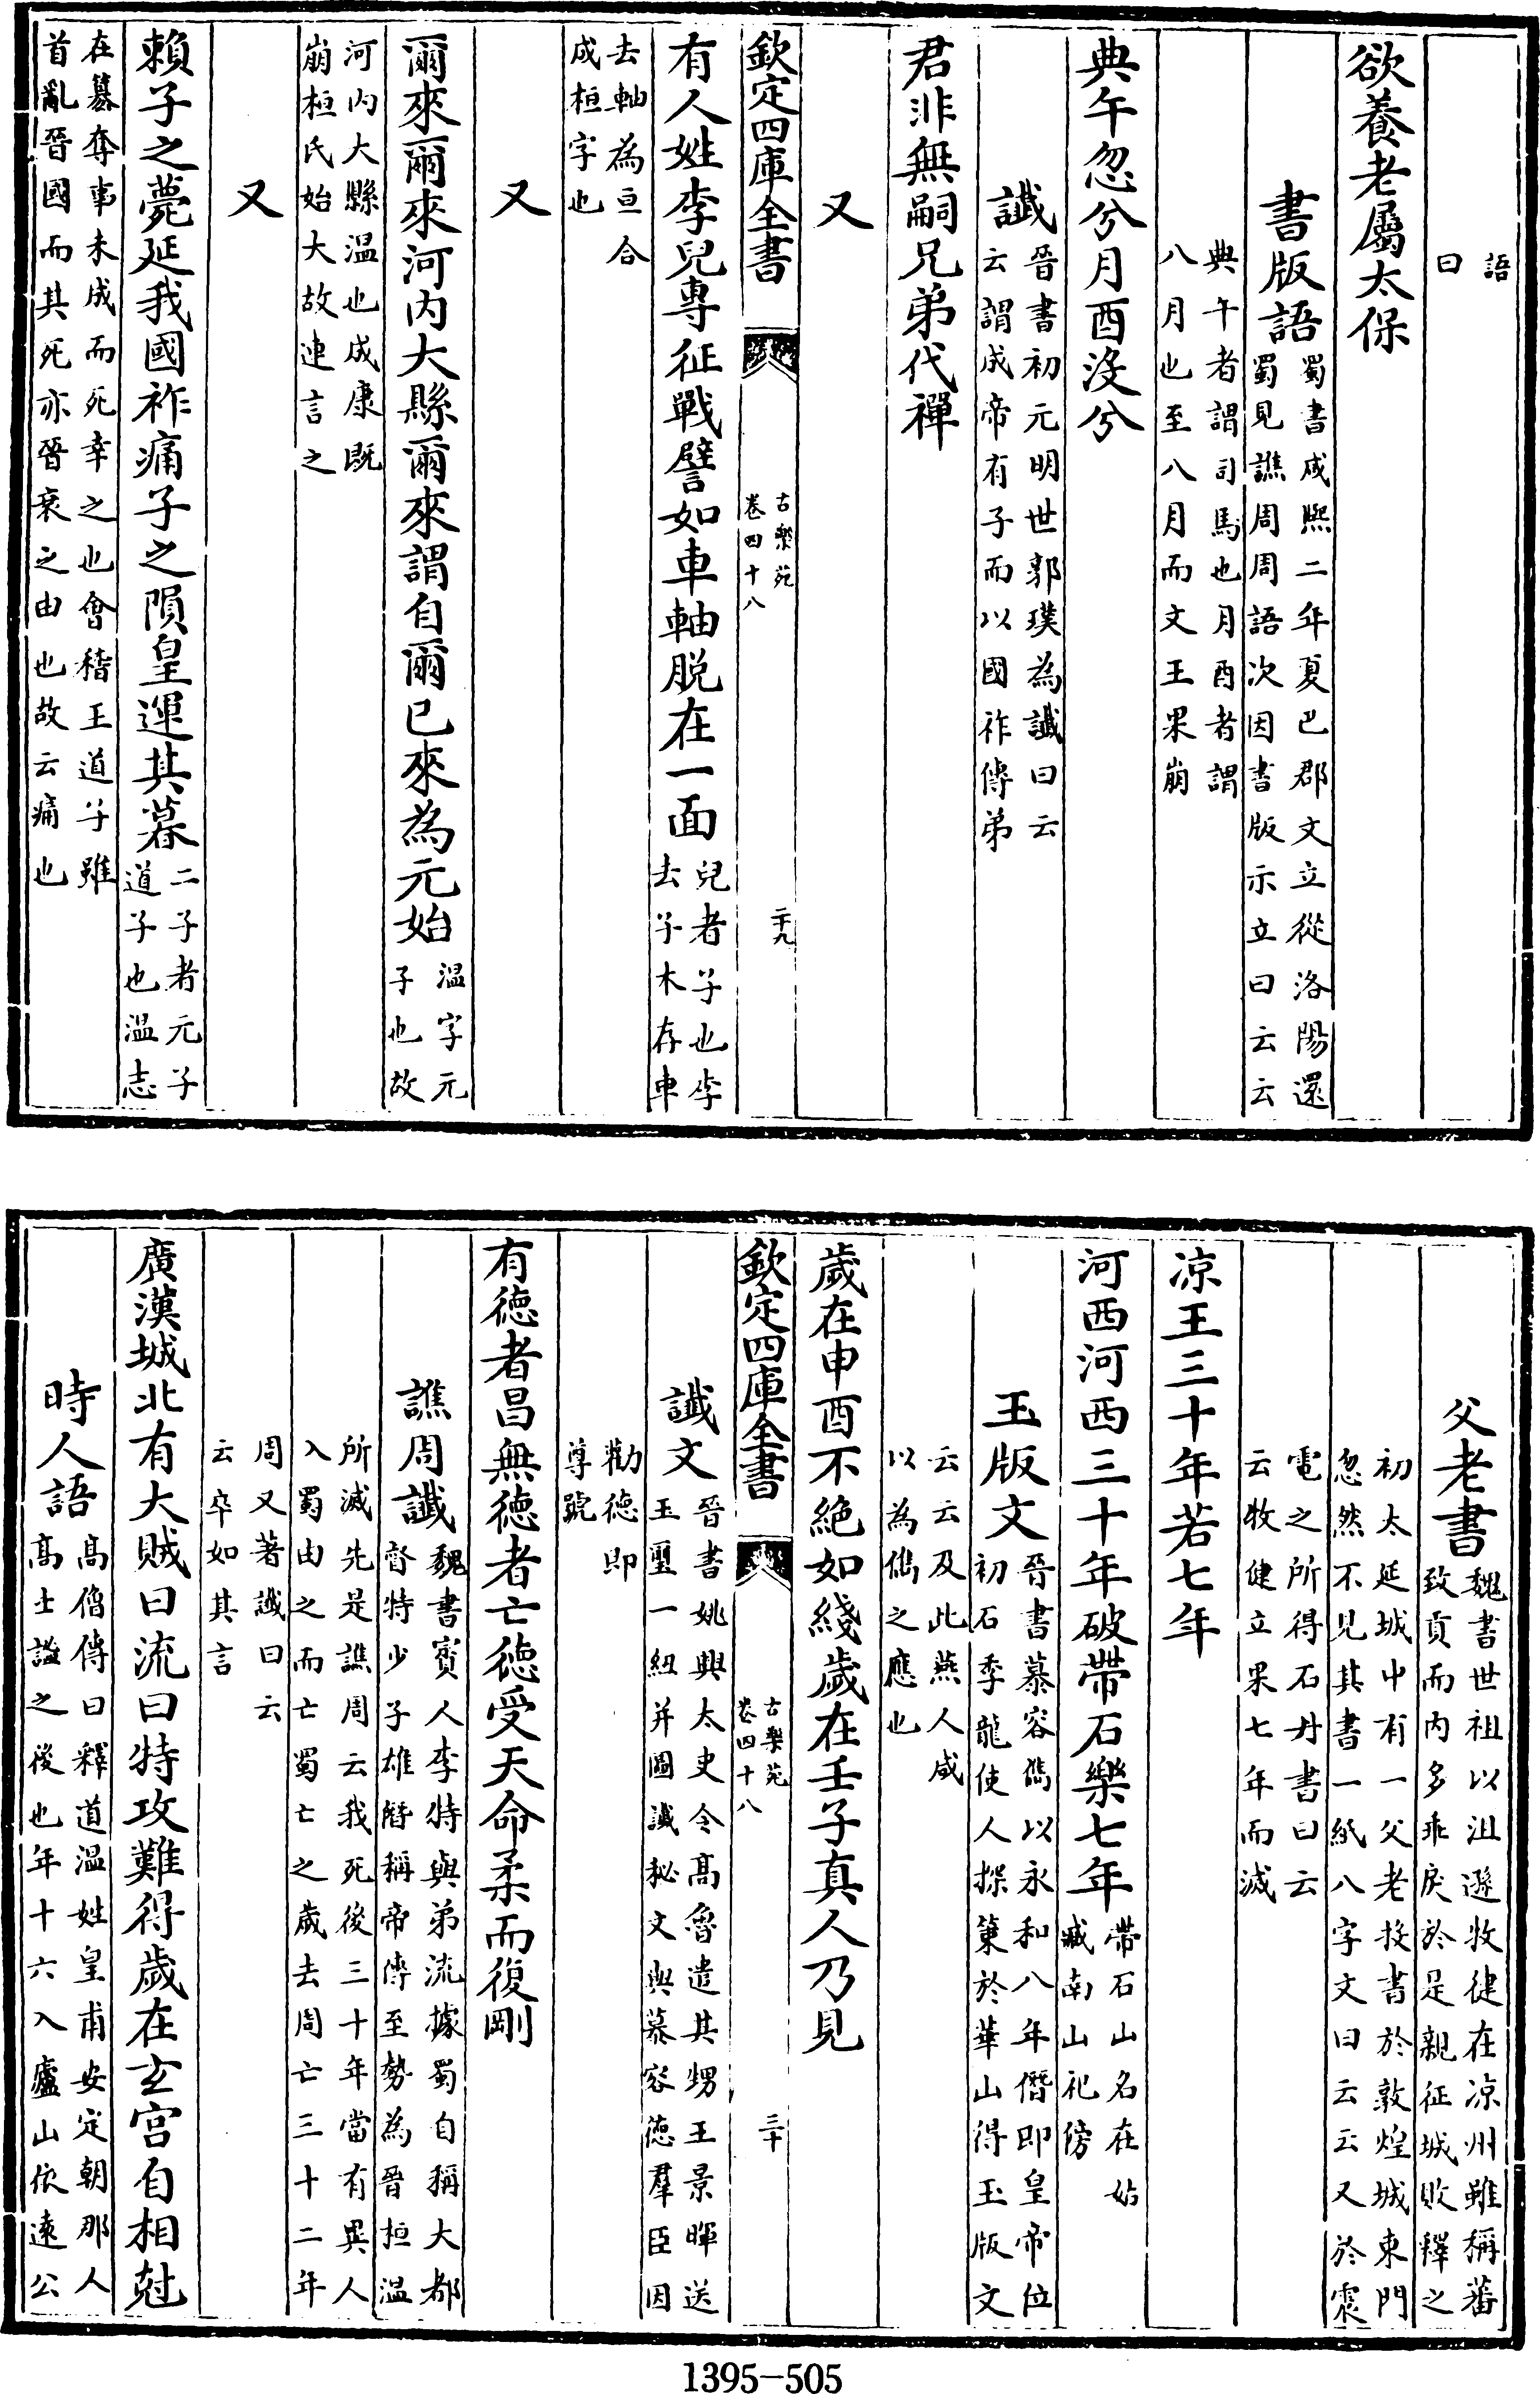 語
曰
欲養老屬太保
書版語
蜀書咸熙二年夏巴郡文立從洛陽還
蜀見譙周周語次因書版示立曰云云
典午者謂司馬也月酉者謂
八月也至八月而文王果崩
典午忽兮月酉沒兮
讖
晉書初元明世郭璞為讖曰云
云謂成帝有子而以國祚傳弟
君非無嗣兄弟代禪
又
欽定四庫全書
古樂苑
卷四十八
二十九
有人姓李兒專征戰譬如車軸脱在一面
兒者子也李
去子木存車
去軸為亘合
成桓字也
又
爾來爾來河内大縣爾來謂自爾已來為元始
溫字元
子也故
河内大縣溫也成康既
崩桓氏始大故連言之
又
賴子之薨延我國祚痛子之隕皇運其暮
二子者元子
道子也溫志
在簒奪事未成而死幸之也會稽王道子雖
首亂晉國而其死亦晉衰之由也故云痛也
父老書
魏書世祖以沮遜牧犍在凉州雖稱蕃
致貢而内多乖戾於是親征城敗釋之
初太延城中有一父老投書於敦煌城東門
忽然不見其書一紙八字文曰云云又於震
電之所得石丹書曰云
云牧健立果七年而滅
凉王三十年若七年
河西河西三十年破帶石樂七年
帶石山名在姑
臧南山祀傍
玉版文
晉書慕容儁以永和八年僭即皇帝位
初石季龍使人探策於華山得玉版文
云云及此燕人咸
以為儁之應也
歲在申酉不絶如綫歲在壬子真人乃見
欽定四庫全書
古樂苑
卷四十八
三十
讖文
晉書姚興太史令高魯遣其甥王景暉送
玉璽一紐并圖讖秘文與慕容徳羣臣因
勸徳即
尊號
有徳者昌無徳者亡徳受天命柔而復剛
譙周讖
魏書賨人李特與弟流據蜀自稱大都
督特少子雄僭稱帝傳至勢為晉桓溫
所滅先是譙周云我死後三十年當有異人
入蜀由之而亡蜀亡之歲去周亡三十二年
周又著讖曰云
云卒如其言
廣漢城北有大賊曰流曰特攻難得歲在玄宫自相尅
時人語
高僧傳曰釋道溫姓皇甫安定朝那人
高士謐之後也年十六入廬山依遠公
1395-505